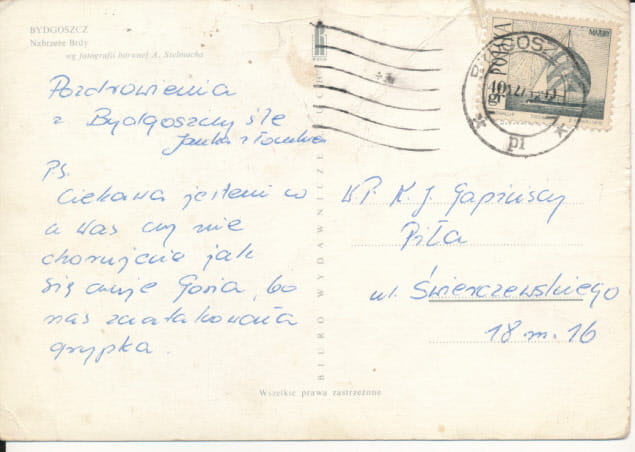 BYDGOSZCZ
Nabrzeże Brdy
wg fotografii barwnej A. Stelmacha
Pozdrowienia
z Bydgoszczy śle
Janka z
Ps.
Ciekawa jestem co
u was czy nie
chorujecie jak
się czuje Gosia, bo
nas zaatakowała
grypka.
BIURO WYDAWNICZE
POLSKA
MAZURY
BYDGOSZCZ
W.P. K. J. Gapińscy
Piła
ul. Świerczewskiego
18 m. 16
Wszelkie prawa zastrzeżone